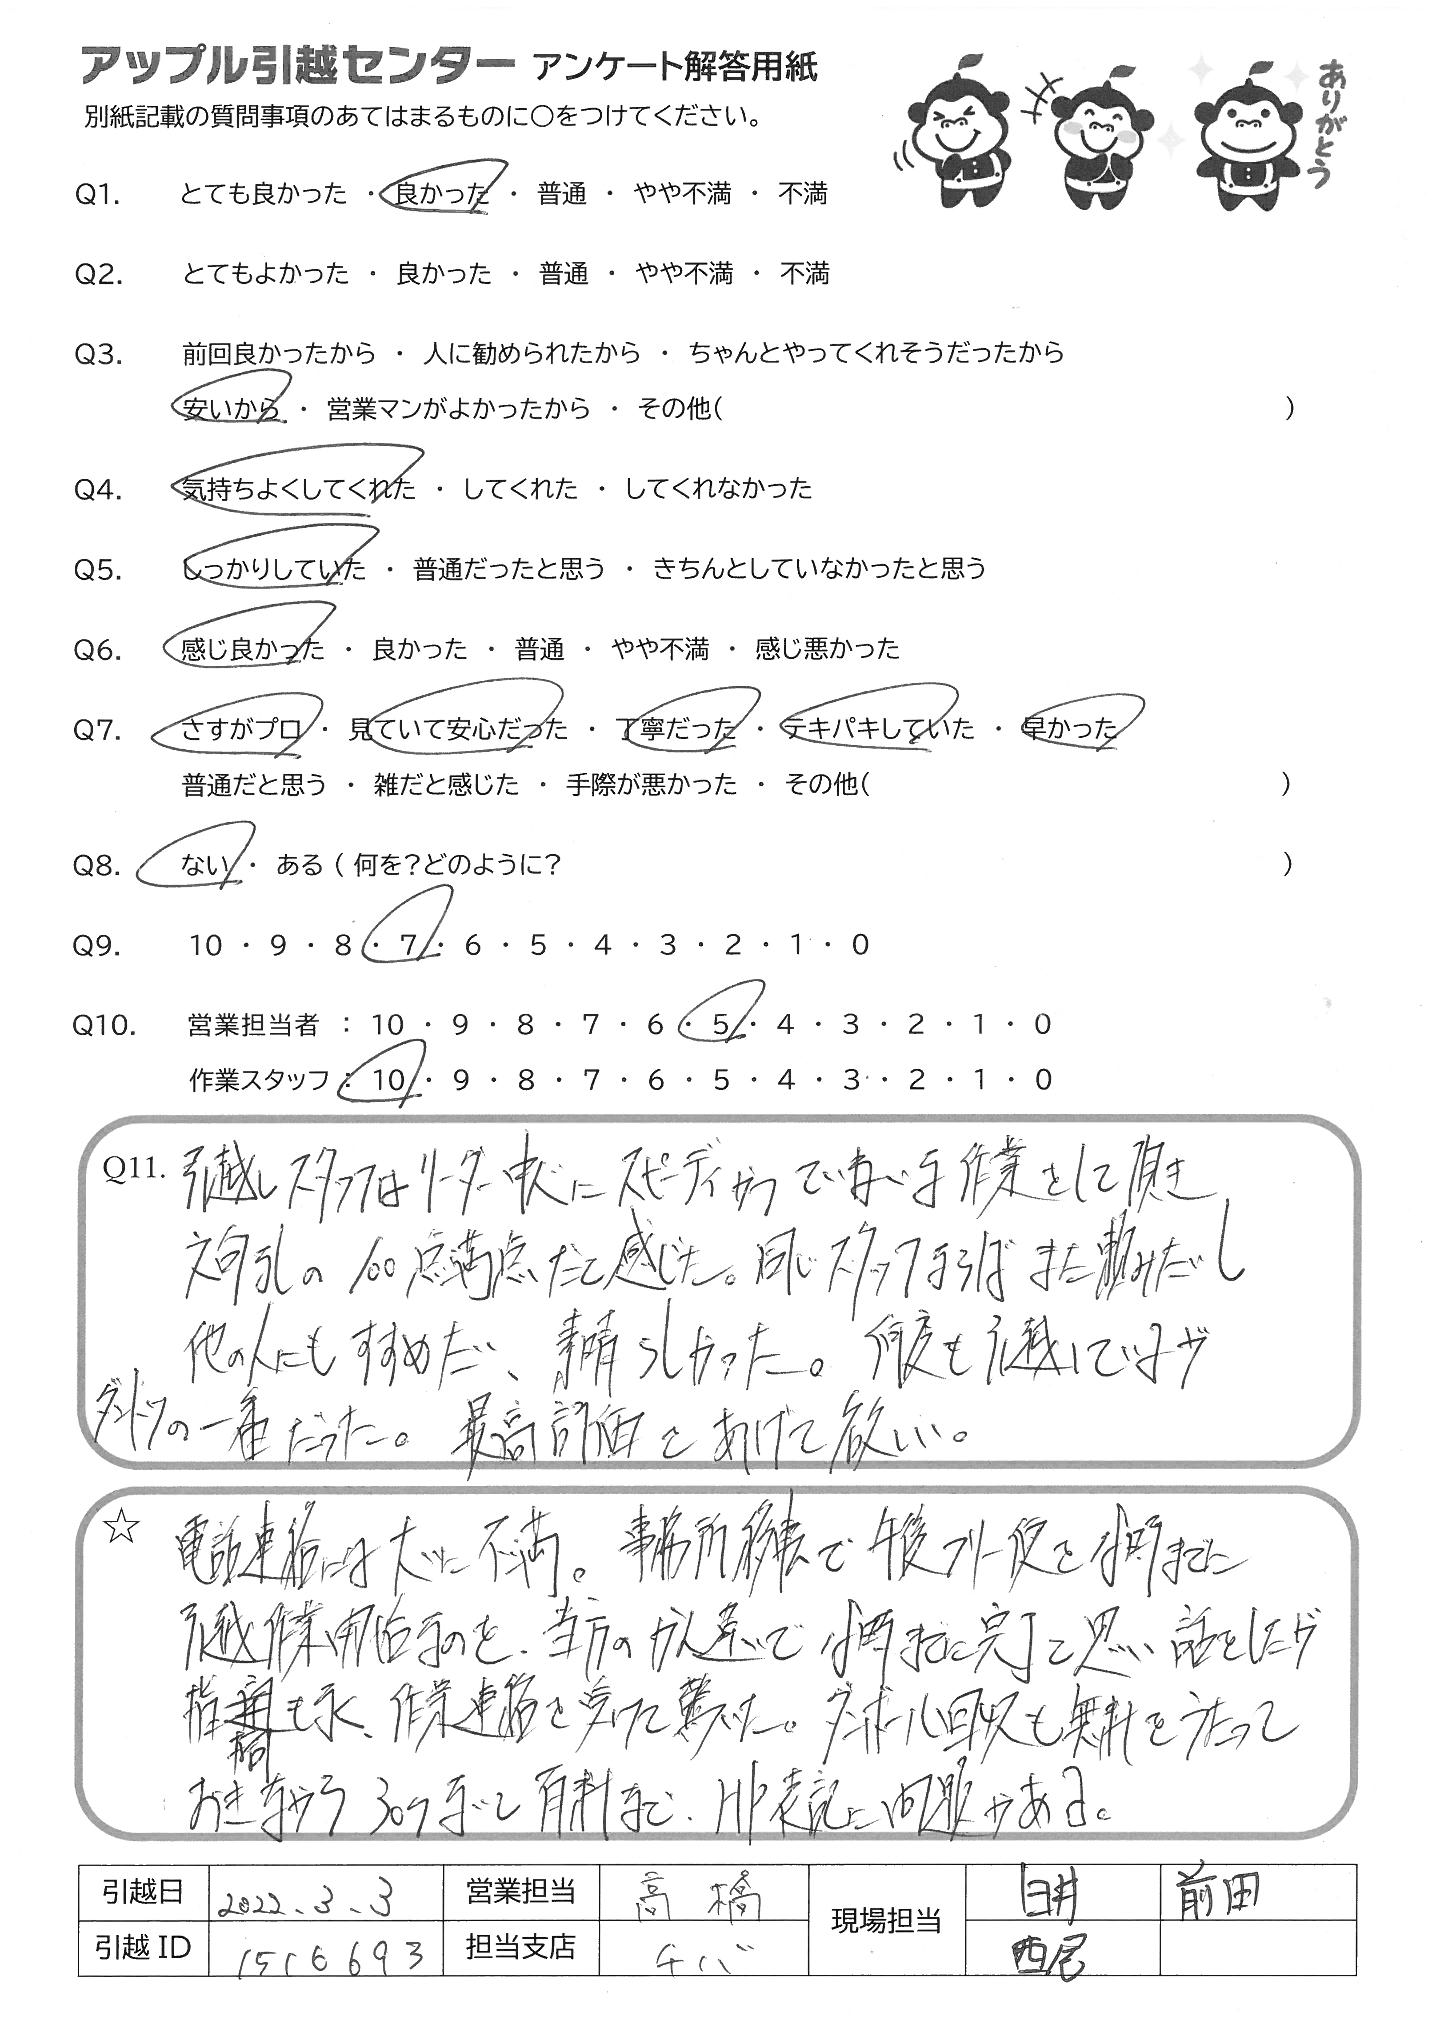 アップル引越センター アンケート解答用紙
ありがとう
別紙記載の質問事項のあてはまるものに○をつけてください。
Q1. とても良かった ・ 良かった ・ 普通 ・ やや不満 ・ 不満
Q2. とてもよかった ・ 良かった ・ 普通 ・ やや不満 ・ 不満
Q3. 前回良かったから ・ 人に勧められたから ・ ちゃんとやってくれそうだったから
安いから ・ 営業マンがよかったから ・ その他( )
Q4. 気持ちよくしてくれた ・ してくれた ・ してくれなかった
Q5. しっかりしていた ・ 普通だったと思う ・ きちんとしていなかったと思う
Q6. 感じ良かった ・ 良かった ・ 普通 ・ やや不満 ・ 感じ悪かった
Q7. さすがプロ ・ 見ていて安心だった ・ 丁寧だった ・ テキパキしていた ・ 早かった
普通だと思う ・ 雑だと感じた ・ 手際が悪かった ・ その他( )
Q8. ない ・ ある ( 何を?どのように? )
Q9. 10 ・ 9 ・ 8 ・ 7 ・ 6 ・ 5 ・ 4 ・ 3 ・ 2 ・ 1 ・ 0
Q10. 営業担当者 : 10 ・ 9 ・ 8 ・ 7 ・ 6 ・ 5 ・ 4 ・ 3 ・ 2 ・ 1 ・ 0
作業スタッフ : 10 ・ 9 ・ 8 ・ 7 ・ 6 ・ 5 ・ 4 ・ 3 ・ 2 ・ 1 ・ 0
Q11. 引越しスタッフはリーダー中心にスピーディかつていねいな作業をして頂き
文句なしの100点満点だと感じた。同じスタッフならばまた頼みたいし
他の人にもすすめたい、素晴らしかった。何度も引越しているが
ダントツの一番だった。最高評価をあげて欲しい。
☆ 電話連絡には大いに不満。事務所移転で午後フリー便を 時までに
引越作業開始なのを、当方のかん違いで 時までに完了と思い話をしたが
指摘も無、作業連絡を受けて驚いた。ダンボール回収も無料をうたって
おきながら30ケ 有料 、HP表記に問題がある。
引越日 2022.3.3 営業担当 高橋 現場担当 臼井 前田
引越ID 1516693 担当支店 チバ 西尾